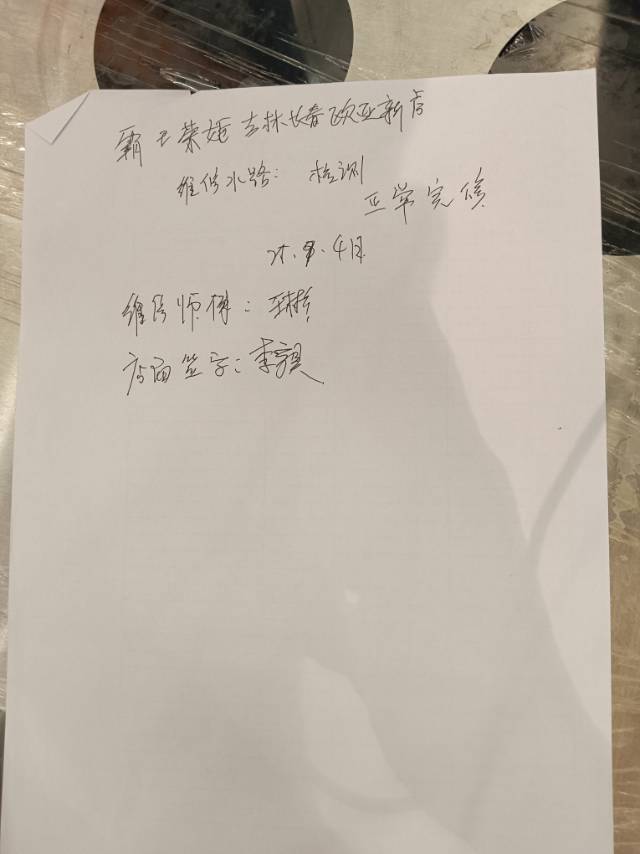 霸王茶姬吉林长春欧亚新店
维修水路: 检测
正常完修
25.9.4日
维修师傅:
店面签字: 李